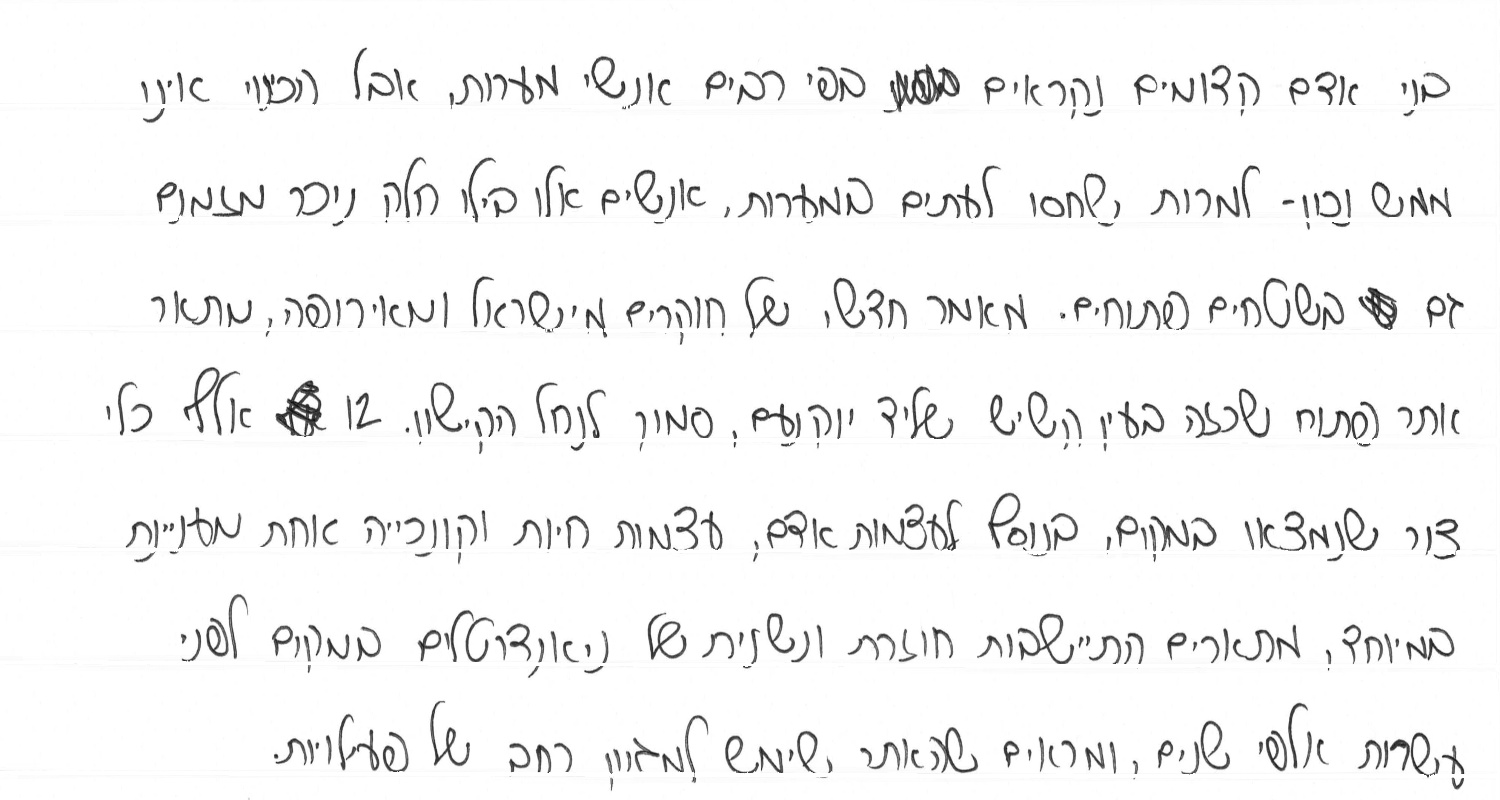 בני אדם קדומים נקראים בפי רבים אנשי מערות, אבל הכינוי אינו
ממש נכון - למרות שחסו לעתים במערות, אנשים אלו בילו חלק ניכר מזמנם
גם בשטחים פתוחים. מאמר חדש, של חוקרים מישראל ומאירופה, מתאר
אתר פתוח שכזה בעין קשיש שליד יוקנעם, סמוך לנחל הקישון. 12 אלף כלי
צור שנמצאו במקום, בנוסף לעצמות אדם, עצמות חיות וקונכייה אחת מעניינת
במיוחד, מתארים התיישבות חוזרת ונשנית של ניאנדרטלים במקום לפני
עשרות אלפי שנים, ומראים שהאתר שימש למגוון רחב של פעילויות.